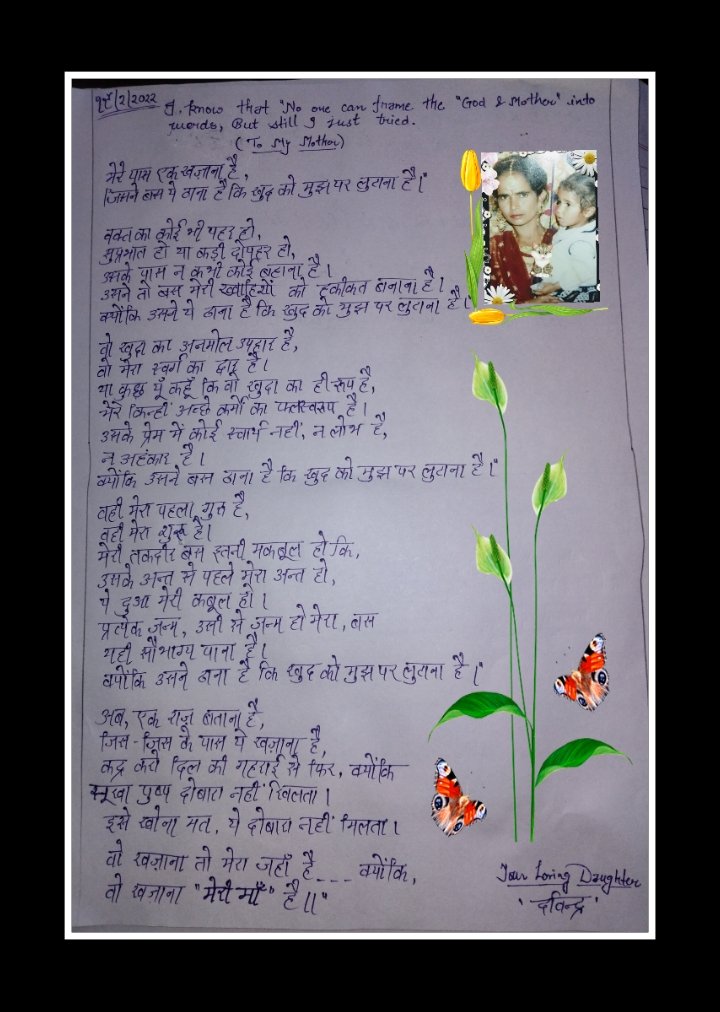 /2/2022
I know that "No one can frame the "God & Mother" into
words, But still I just tried.
(To My Mother)
मेरे पास एक खज़ाना है,
जिसने बस ये ठाना है कि खुद को मुझ पर लुटाना है।"
वक्त का कोई भी पहर हो,
सुप्रभात हो या कड़ी दोपहर हो,
उसके पास न कभी कोई बहाना है।
उसने तो बस मेरी ख्वाहिशों को हकीकत बनाना है।
क्योंकि उसने ये ठाना है कि खुद को मुझ पर लुटाना है।"
वो खुदा का अनमोल उपहार है,
वो मेरा स्वर्ग का द्वार है।
या कुछ यूँ कहूँ कि वो खुदा का ही रूप है,
मेरे किन्हीं अच्छे कर्मों का फलस्वरूप है।
उसके प्रेम में कोई स्वार्थ नहीं, न लोभ है,
न अहंकार है।
क्योंकि उसने बस ठाना है कि खुद को मुझ पर लुटाना है।"
वही मेरा पहला गुरु है,
वही मेरा शुरू है।
मेरी तकदीर बस इतनी मकबूल हो कि,
उसके अन्त से पहले मेरा अन्त हो,
ये दुआ मेरी कबूल हो।
प्रत्येक जन्म, उसी से जन्म हो मेरा, बस
यही सौभाग्य पाना है।
क्योंकि उसने ठाना है कि खुद को मुझ पर लुटाना है।"
अब, एक राज़ बताना है,
जिस-जिस के पास ये खज़ाना है,
कद्र करो दिल की गहराई से फिर, क्योंकि
सूखा पुष्प दोबारा नहीं खिलता।
इसे खोना मत, ये दोबारा नहीं मिलता।
वो खज़ाना तो मेरा जहाँ है___ क्योंकि,
वो खजाना "मेरी माँ" है।।"
Your Loving Daughter
'दविन्द्र'